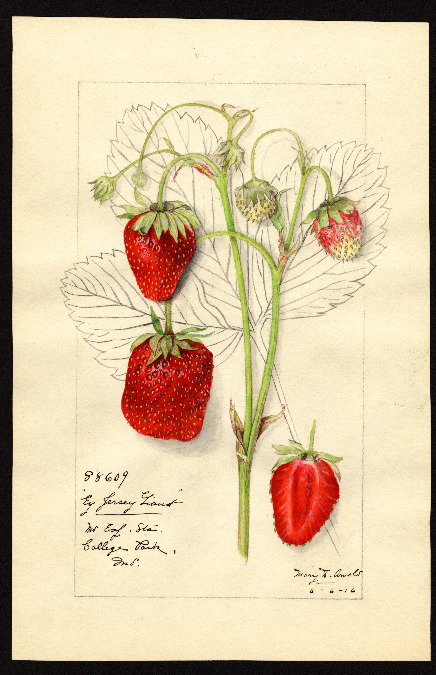 88609
"Ex Jersey Giant"
Md Exp. Sta.
College Park,
Md.
Mary D. Arnold
6-6-16